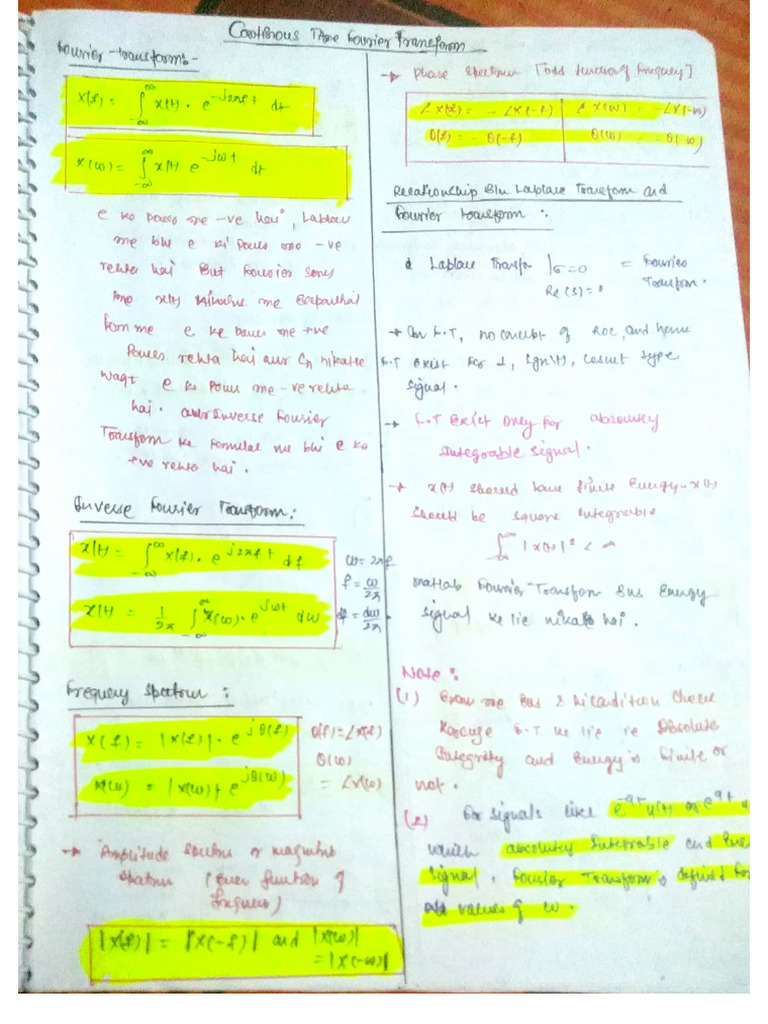 Continous Time Fourier Transform
Fourier-transform:-
X(f) = ∫_{-∞}^{∞} x(t) . e^{-j2πft} dt
X(ω) = ∫_{-∞}^{∞} x(t) e^{-jωt} dt
e ko power me -ve hai, Laplace
me bhi e ki power me -ve
rehta hai But Fourier series
me x(t) nikalne me Exponential
form me e ke power me +ve
Power rehta hai aur Cn nikalte
waqt e ko power me -ve rehta
hai. aur Inverse Fourier
Transform ke formulae me bhi e ka
+ve rehta hai.
Inverse Fourier Transform:
x(t) = ∫_{-∞}^{∞} X(f). e^{j2πft} df
x(t) = 1/2π ∫_{-∞}^{∞} X(ω). e^{jωt} dω
ω = 2πf
f = ω/2π
df = dω/2π
Frequency Spectrum :
X(f) = |X(f)| . e^{jθ(f)}
X(ω) = |X(ω)| e^{jθ(ω)}
θ(f) = ∠X(f)
θ(ω)
= ∠X(ω)
→ Amplitude Spectrum or magnitude
Spectrum (Even function of
frequency)
|X(f)| = |X(-f)| and |X(ω)|
= |X(-ω)|
→ Phase Spectrum [odd function of frequency]
∠X(f) = -∠X(-f) ∠X(ω) = -∠X(-ω)
θ(f) = -θ(-f) θ(ω) = -θ(-ω)
Relationship B/w Laplace Transform and
Fourier transform :-
Laplace Transfom |σ=0 = Fourier
Re(s)=0 Transform.
→ In F.T, no concept of ROC, and hence
F.T exist for 1, sgn(t), cosωt type
signal.
→ F.T Exist Only for absolutely
Integrable Signal.
→ x(t) should have finite Energy. x(t)
should be square integrable
∫ |x(t)|² < ∞
matlab Fourier Transfom Bus Energy
signal ke lie nikale hai.
Note :
(1) Exam me Bus 2 hi condition check
F.T ke lie ie Absolute
Integrity and Energy is finite or
not.
(2) For signals like e^{-at}u(t) or e^{at}
which absolutely Integrable and
Signal. Fourier Transform is defined for
all values of ω.